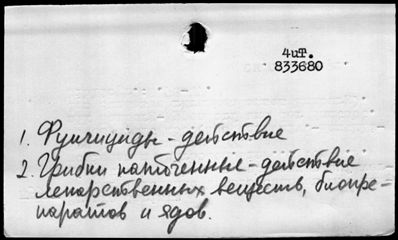 4иТ.
833680
1. Фунгициды - действие
2. Грибки патогенные - действие
лекарственных веществ, биопре-
паратов и ядов.